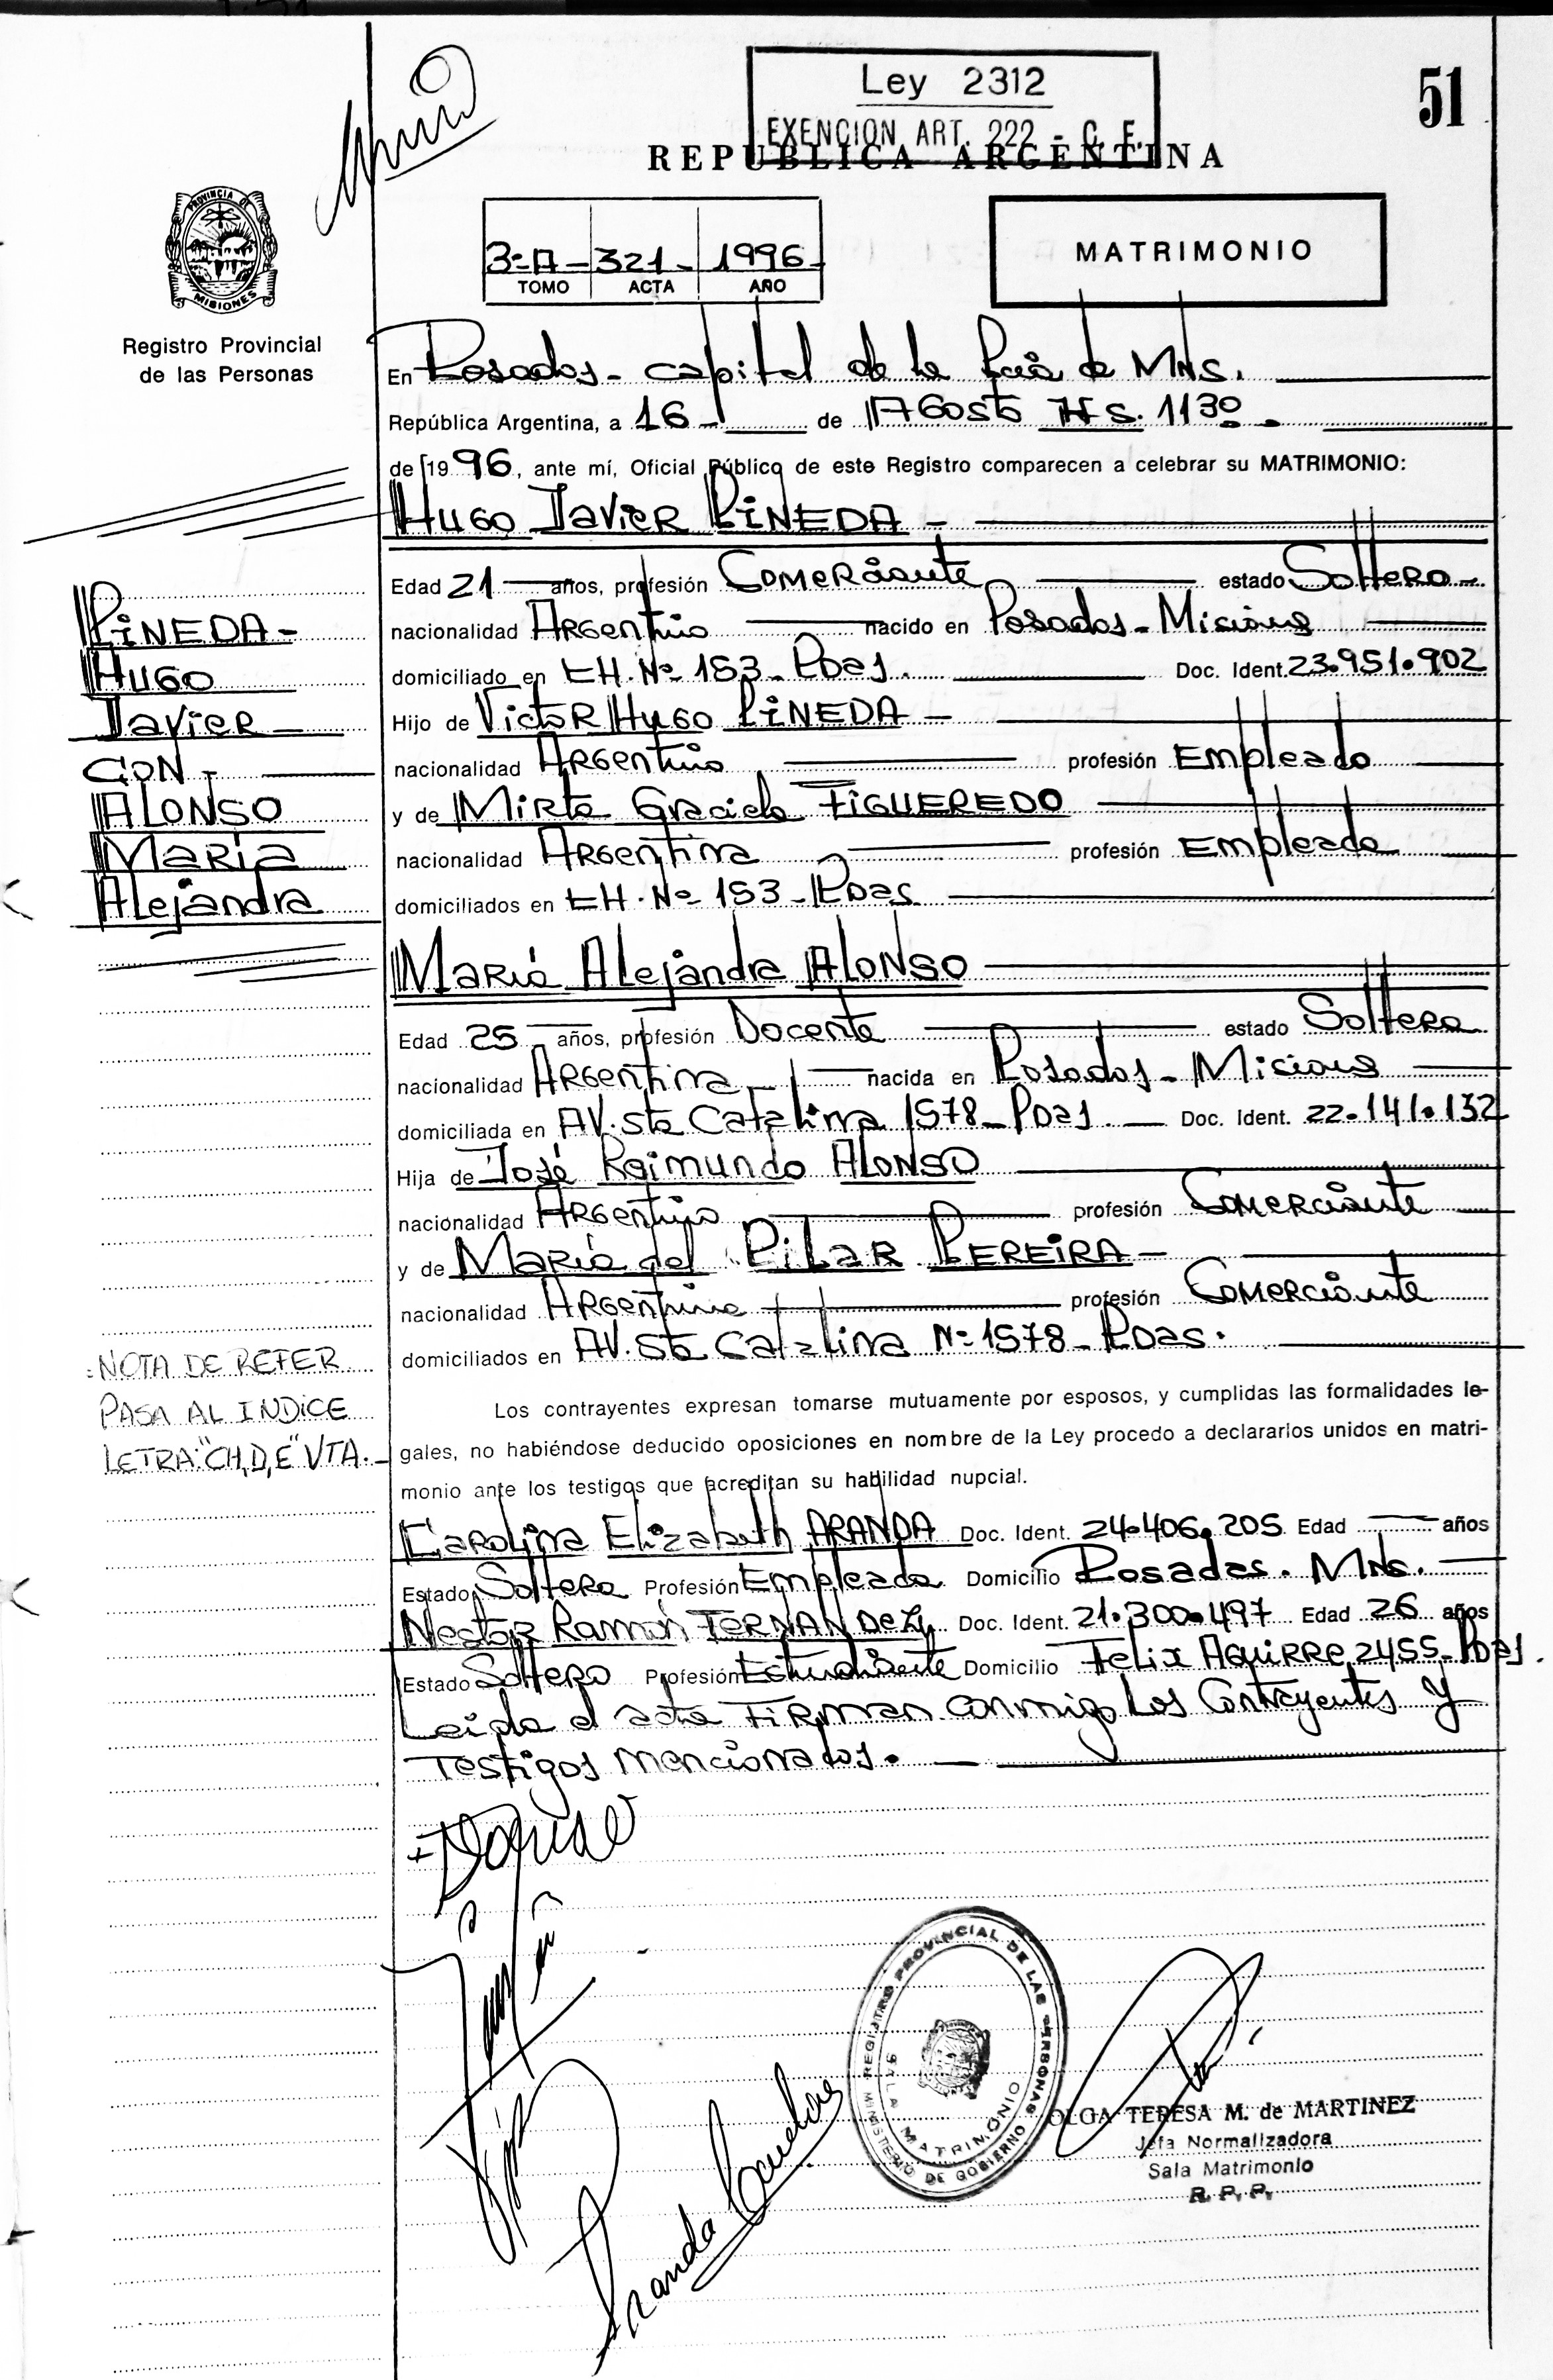 Ley 2312
EXENCION ART. 222 - C. F.
51
REPUBLICA ARGENTINA
PROVINCIA DE
MISIONES
Registro Provincial
de las Personas
3-A- 321- 1996-
TOMO ACTA AÑO
MATRIMONIO
En Posadas - capital de la Pcia de Mns.
República Argentina, a 16 - de Agosto HS. 1130
de 1996, ante mí, Oficial Público de este Registro comparecen a celebrar su MATRIMONIO:
Hugo Javier PINEDA -
Edad 21 años, profesión Comerciante estado Soltero -
nacionalidad Argentino nacido en Posadas - Misiones
domiciliado en CH. Nº 153 - Pdas. Doc. Ident. 23.951.902
Hijo de Victor Hugo PINEDA -
nacionalidad Argentino profesión Empleado
y de Mirta Graciela FIGUEREDO
nacionalidad Argentina profesión Empleada
domiciliados en CH. Nº 153 - Pdas
PINEDA -
Hugo
Javier
CON -
ALONSO
Maria
Alejandra
María Alejandra ALONSO
Edad 25 - años, profesión Docente estado Soltera
nacionalidad Argentina - nacida en Posadas - Misiones
domiciliada en AV. Sta Catalina 1578 - Pdas. Doc. Ident. 22.141.132
Hija de José Raimundo ALONSO
nacionalidad Argentino profesión Comerciante
y de María del Pilar PEREIRA -
nacionalidad Argentina profesión Comerciante
domiciliados en AV. Sta Catalina Nº 1578 - Pdas.
NOTA DE REFER
PASA AL INDICE
LETRA: "CH, D, E" VTA.
Los contrayentes expresan tomarse mutuamente por esposos, y cumplidas las formalidades le-
gales, no habiéndose deducido oposiciones en nombre de la Ley procedo a declararlos unidos en matri-
monio ante los testigos que acreditan su habilidad nupcial.
Carolina Elizabeth ARANDA Doc. Ident. 24.406.205 Edad años
Estado Soltera Profesión Empleada Domicilio Posadas. Mns.
Nestor Ramón FERNANDEZ Doc. Ident. 21.300.497 Edad 26 años
Estado Soltero Profesión Estudiante Domicilio Felix Aguirre 2455 - Pdas.
Leida el acta FIRMAN conmigo Los Contrayentes y
Testigos mencionados.
Aranda Carolina
REGISTRO PROVINCIAL DE LAS PERSONAS
MINISTERIO DE GOBIERNO
SALA MATRIMONIO
OLGA TERESA M. de MARTINEZ
Jefa Normalizadora
Sala Matrimonio
R. P. P.